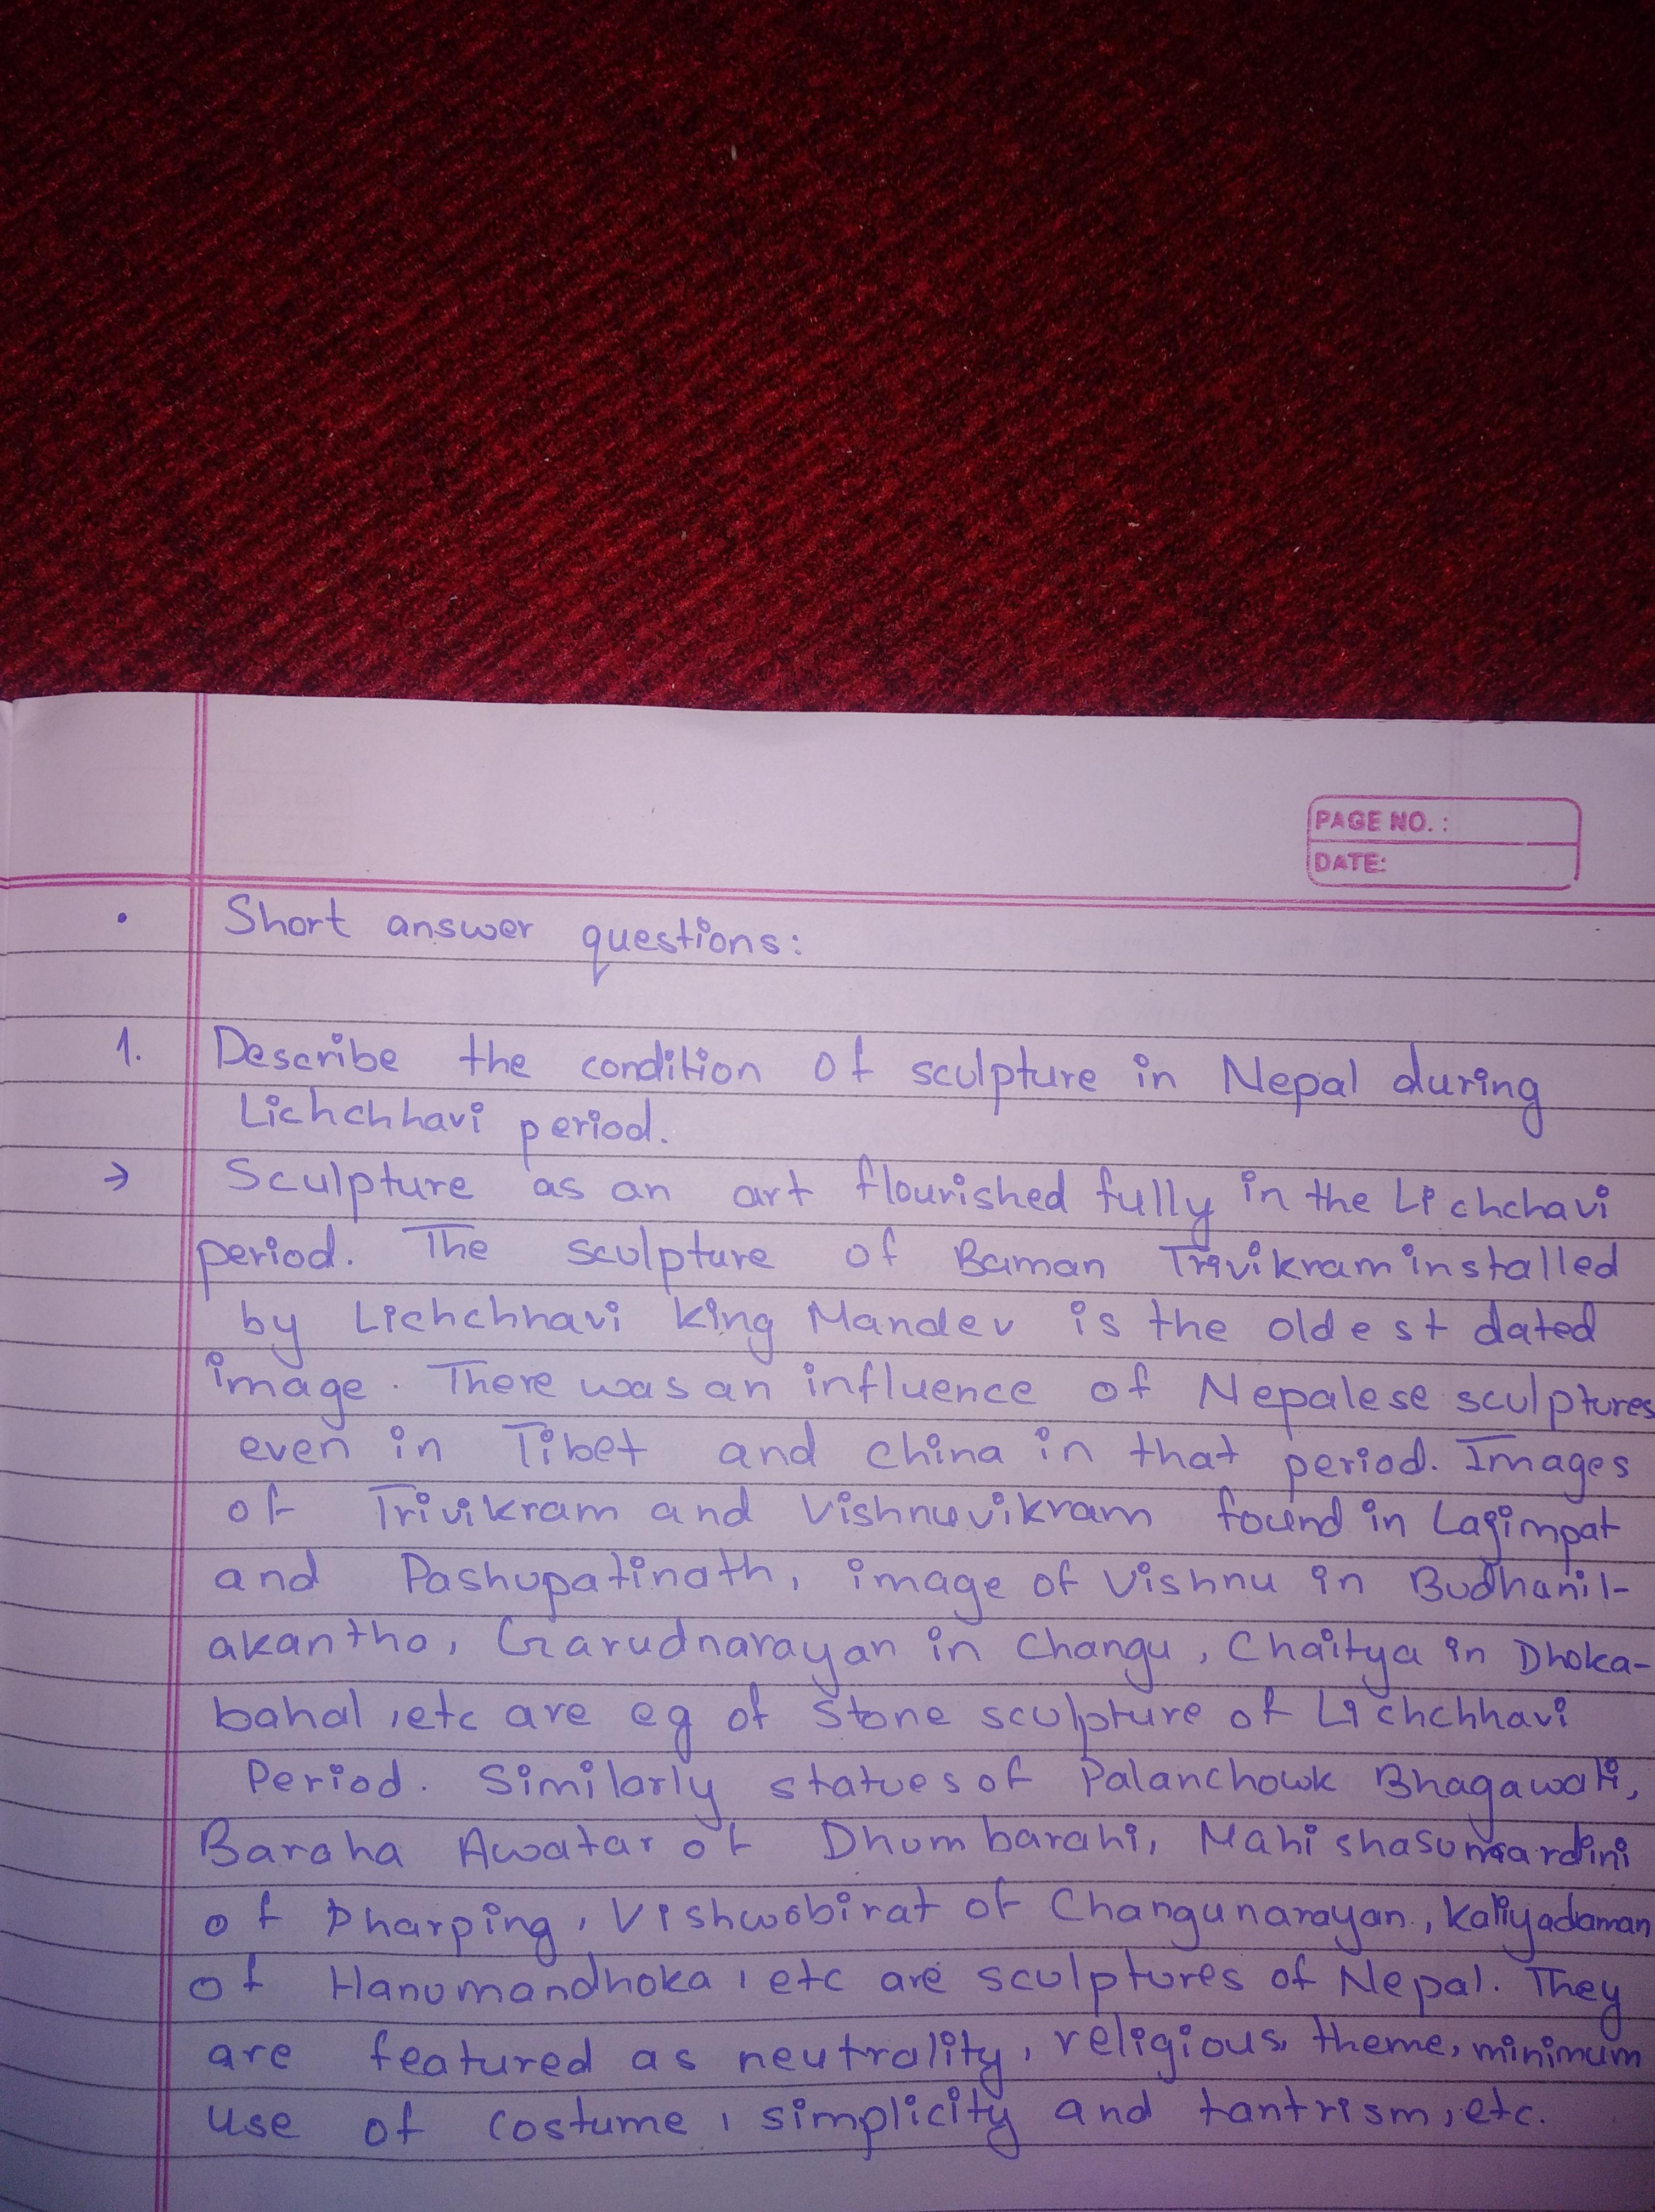 PAGE NO. :
DATE:
• Short answer questions:
1. Describe the condition of sculpture in Nepal during
Lichchhavi period.
→ Sculpture as an art flourished fully in the Lichchavi
period. The sculpture of Baman Trivikram installed
by Lichchhavi king Mandev is the oldest dated
image. There was an influence of Nepalese sculptures
even in Tibet and china in that period. Images
of Trivikram and Vishnuvikram found in Lazimpat
and Pashupatinath, image of Vishnu in Budhanil-
akantha, Garudnarayan in Changu, Chaitya in Dhoka-
bahal, etc are eg of stone sculpture of Lichchhavi
Period. Similarly statues of Palanchowk Bhagawati,
Baraha Awatar of Dhumbarahi, Mahishasumardini
of Pharping, Vishwobirat of Changunarayan, Kaliyadaman
of Hanumandhoka, etc are sculptures of Nepal. They
are featured as neutrality, religious theme, minimum
use of costume, simplicity and tantrism, etc.